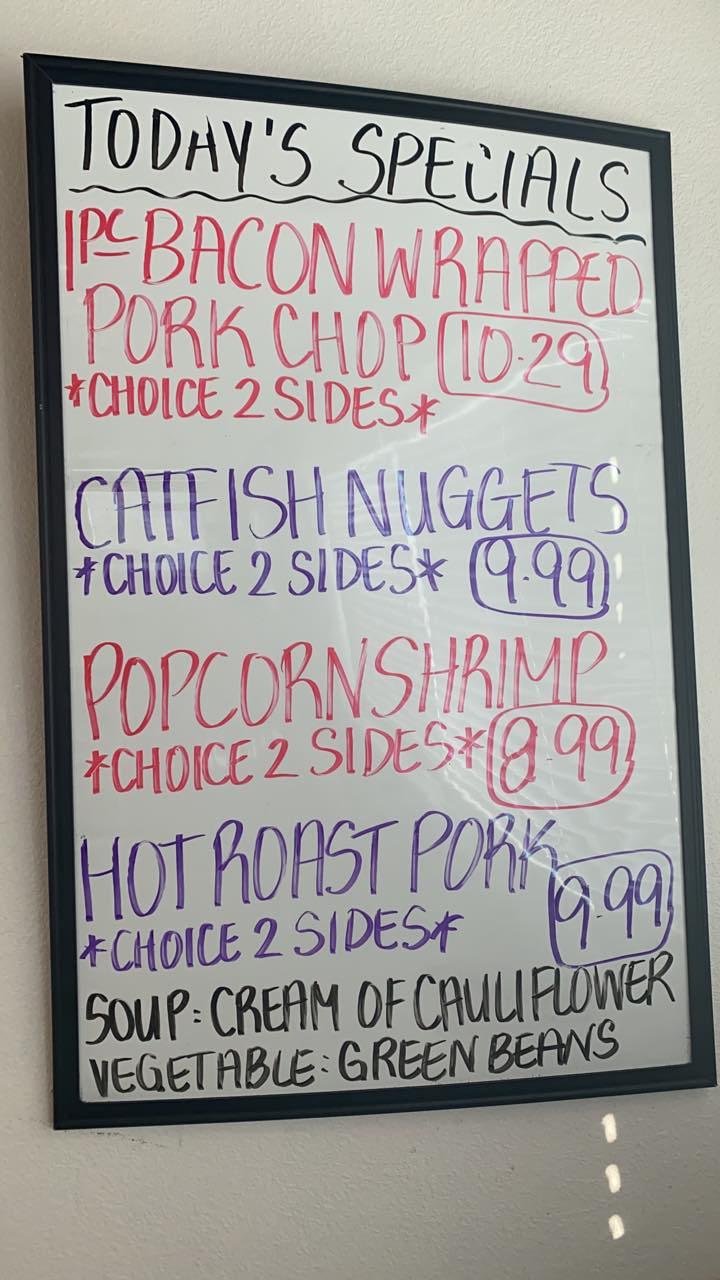 TODAY'S SPECIALS
1PC BACON WRAPPED
PORK CHOP 10.29
*CHOICE 2 SIDES*
CATFISH NUGGETS
*CHOICE 2 SIDES* 9.99
POPCORN SHRIMP
*CHOICE 2 SIDES* 8.99
HOT ROAST PORK
*CHOICE 2 SIDES* 9.99
SOUP: CREAM OF CAULIFLOWER
VEGETABLE: GREEN BEANS